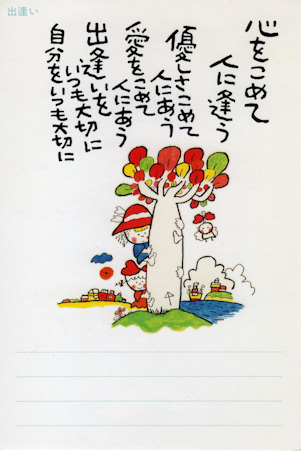 出逢い
心をこめて
人に逢う
優しさこめて
人にあう
愛をこめて
人にあう
出逢いを
いつも大切に
自分をいつも大切に